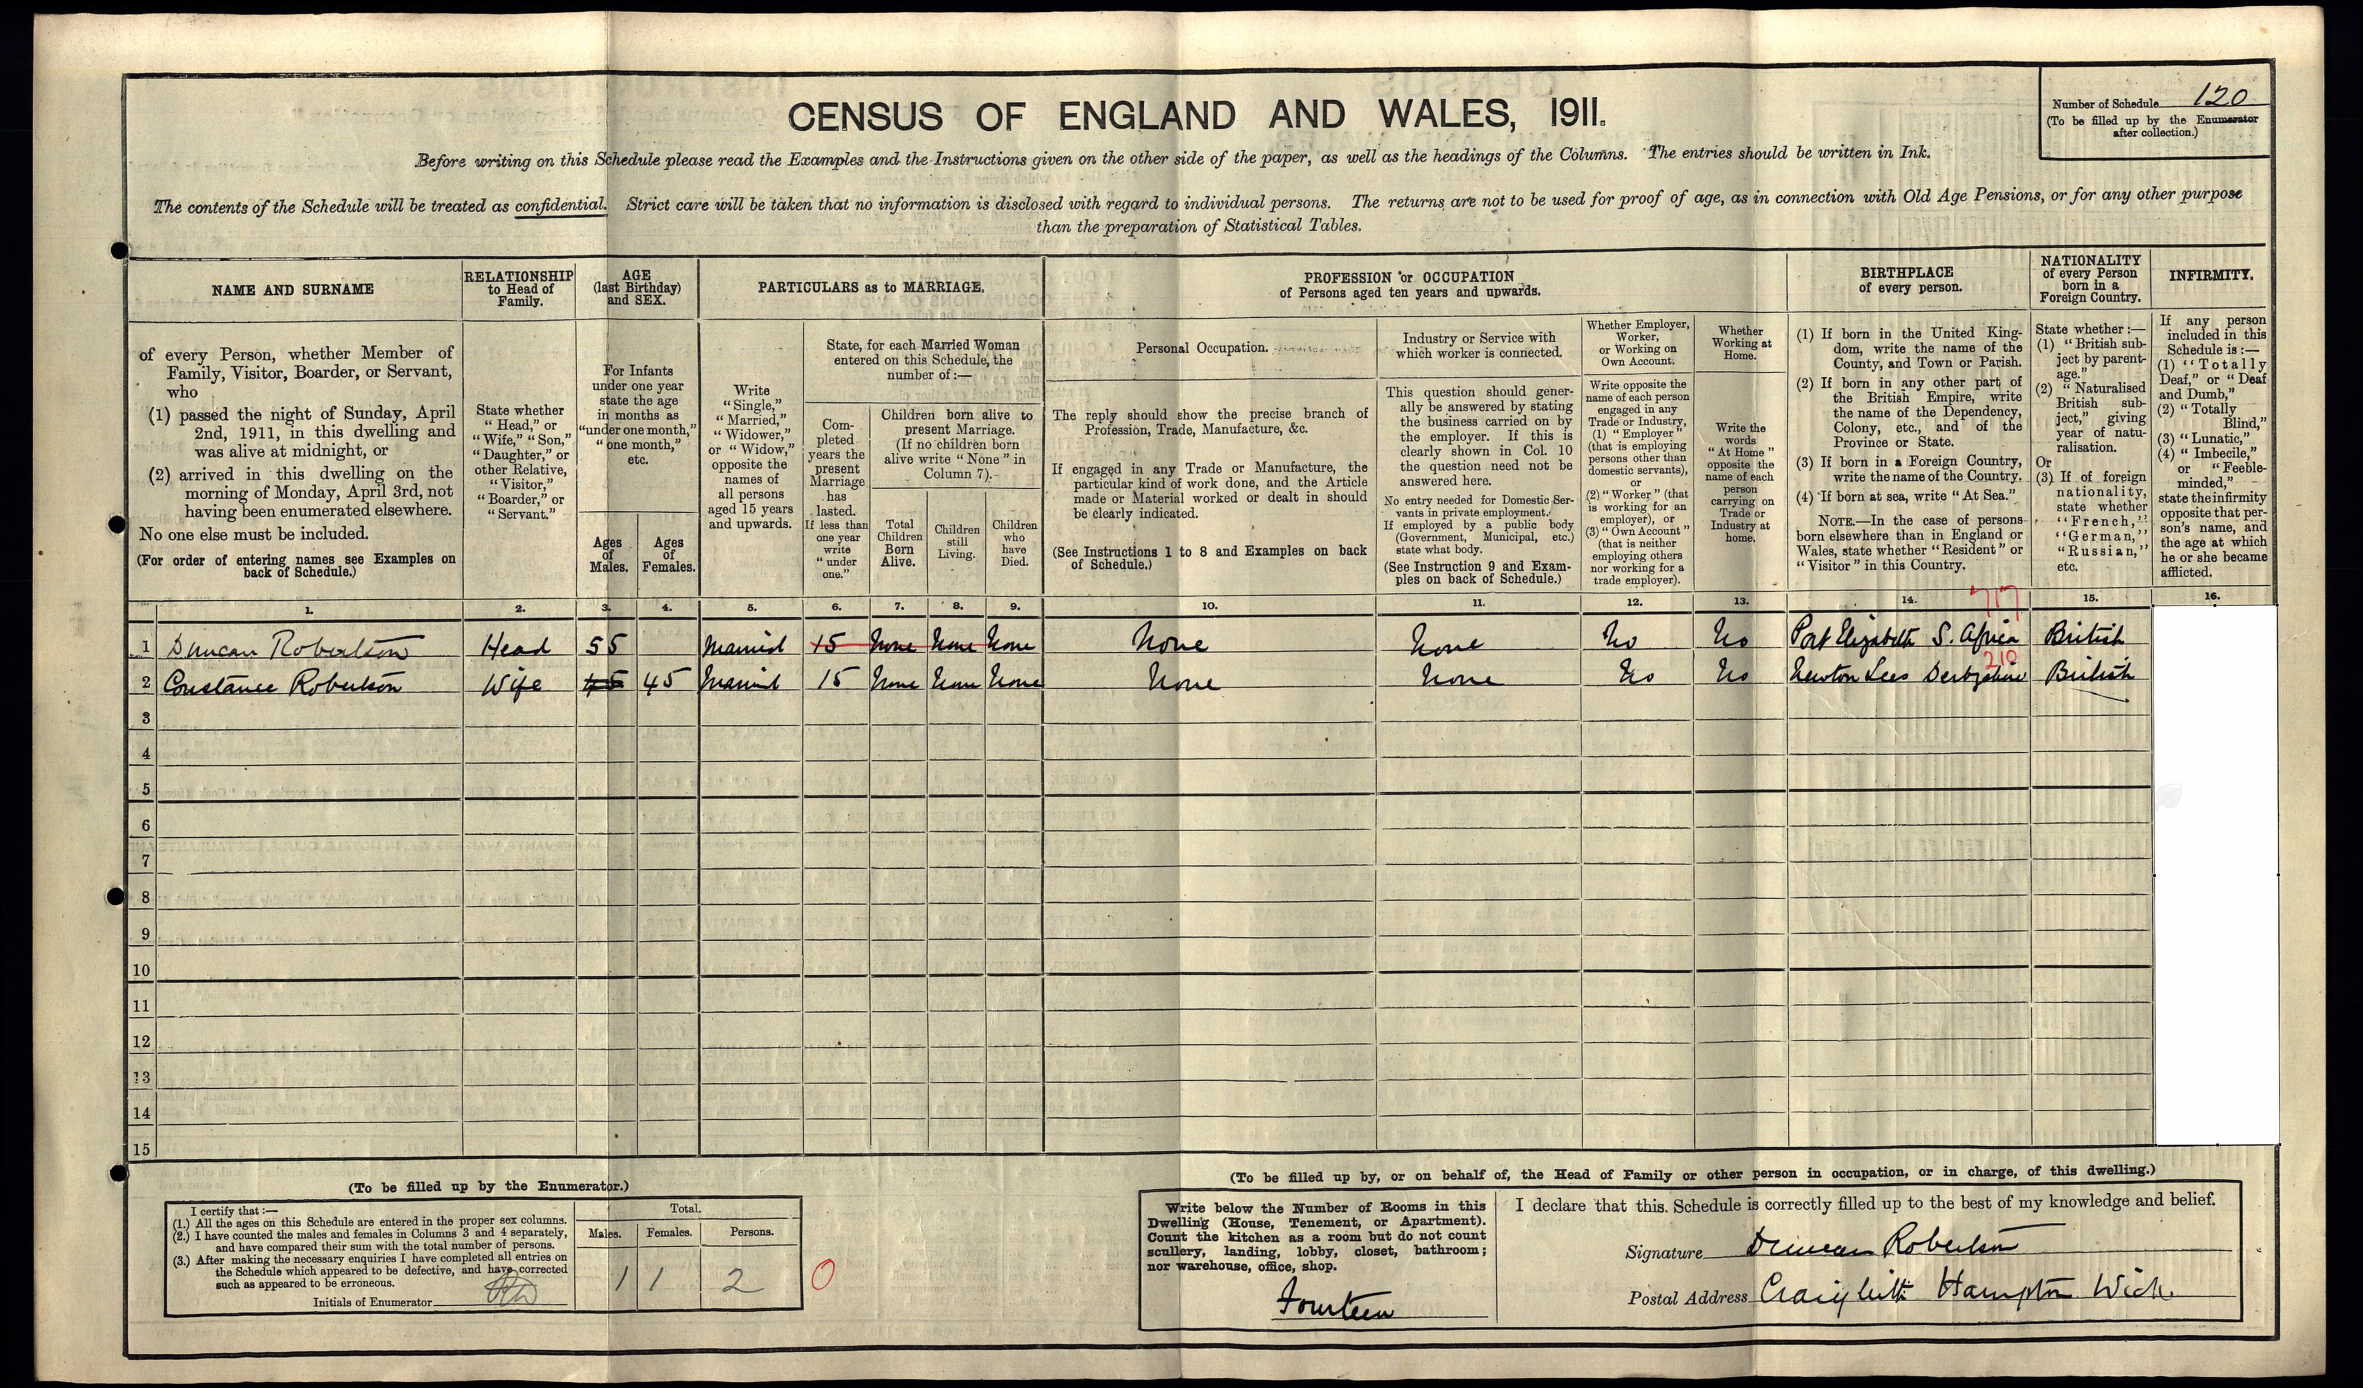 CENSUS OF ENGLAND AND WALES, 1911.
Number of Schedule 120
(To be filled up by the Enumerator
after collection.)
Before writing on this Schedule please read the Examples and the Instructions given on the other side of the paper, as well as the headings of the Columns. The entries should be written in Ink.
The contents of the Schedule will be treated as confidential. Strict care will be taken that no information is disclosed with regard to individual persons. The returns are not to be used for proof of age, as in connection with Old Age Pensions, or for any other purpose
than the preparation of Statistical Tables.
NAME AND SURNAME
of every Person, whether Member of
Family, Visitor, Boarder, or Servant,
who
(1) passed the night of Sunday, April
2nd, 1911, in this dwelling and
was alive at midnight, or
(2) arrived in this dwelling on the
morning of Monday, April 3rd, not
having been enumerated elsewhere.
No one else must be included.
(For order of entering names see Examples on
back of Schedule.)
RELATIONSHIP
to Head of
Family.
State whether
"Head," or
"Wife," "Son,"
"Daughter," or
other Relative,
"Visitor,"
"Boarder," or
"Servant."
AGE
(last Birthday)
and SEX.
For Infants
under one year
state the age
in months as
"under one month,"
"one month,"
etc.
Ages
of
Males.
Ages
of
Females.
PARTICULARS as to MARRIAGE.
Write
"Single,"
"Married,"
"Widower,"
or "Widow,"
opposite the
names of
all persons
aged 15 years
and upwards.
State, for each Married Woman
entered on this Schedule, the
number of:—
Com-
pleted
years the
present
Marriage
has
lasted.
If less than
one year
write
"under
one."
Children born alive to
present Marriage.
(If no children born
alive write "None" in
Column 7).
Total
Children
Born
Alive.
Children
still
Living.
Children
who
have
Died.
PROFESSION or OCCUPATION
of Persons aged ten years and upwards.
Personal Occupation.
The reply should show the precise branch of
Profession, Trade, Manufacture, &c.
If engaged in any Trade or Manufacture, the
particular kind of work done, and the Article
made or Material worked or dealt in should
be clearly indicated.
(See Instructions 1 to 8 and Examples on back
of Schedule.)
Industry or Service with
which worker is connected.
This question should gener-
ally be answered by stating
the business carried on by
the employer. If this is
clearly shown in Col. 10
the question need not be
answered here.
No entry needed for Domestic Ser-
vants in private employment.
If employed by a public body
(Government, Municipal, etc.)
state what body.
(See Instruction 9 and Exam-
ples on back of Schedule.)
Whether Employer,
Worker,
or Working on
Own Account.
Write opposite the
name of each person
engaged in any
Trade or Industry,
(1) "Employer"
(that is employing
persons other than
domestic servants),
or
(2) "Worker" (that
is working for an
employer), or
(3) "Own Account"
(that is neither
employing others
nor working for a
trade employer).
Whether
Working at
Home.
Write the
words
"At Home"
opposite the
name of each
person
carrying on
Trade or
Industry at
home.
BIRTHPLACE
of every person.
(1) If born in the United King-
dom, write the name of the
County, and Town or Parish.
(2) If born in any other part of
the British Empire, write
the name of the Dependency,
Colony, etc., and of the
Province or State.
(3) If born in a Foreign Country,
write the name of the Country.
(4) If born at sea, write "At Sea."
NOTE.—In the case of persons
born elsewhere than in England or
Wales, state whether "Resident" or
"Visitor" in this Country.
NATIONALITY
of every Person
born in a
Foreign Country.
State whether:—
(1) "British sub-
ject by parent-
age."
(2) "Naturalised
British sub-
ject," giving
year of natu-
ralisation.
Or
(3) If of foreign
nationality,
state whether
"French,"
"German,"
"Russian,"
etc.
INFIRMITY.
If any person
included in this
Schedule is:—
(1) "Totally
Deaf," or "Deaf
and Dumb,"
(2) "Totally
Blind,"
(3) "Lunatic,"
(4) "Imbecile,"
or "Feeble-
minded,"
state the infirmity
opposite that per-
son's name, and
the age at which
he or she became
afflicted.
1. 2. 3. 4. 5. 6. 7. 8. 9. 10. 11. 12. 13. 14. 15. 16.
717
1 Duncan Robertson Head 55 Married 15 None None None None None No No Port Elizabeth S. Africa British
210
2 Constance Robertson Wife 45 45 Married 15 None None None None None No No Newton Lees Derbyshire British
3
4
5
6
7
8
9
10
11
12
13
14
15
(To be filled up by the Enumerator.)
I certify that:—
(1.) All the ages on this Schedule are entered in the proper sex columns.
(2.) I have counted the males and females in Columns 3 and 4 separately,
and have compared their sum with the total number of persons.
(3.) After making the necessary enquiries I have completed all entries on
the Schedule which appeared to be defective, and have corrected
such as appeared to be erroneous.
Initials of Enumerator
Total.
Males. Females. Persons.
1 1 2
0
(To be filled up by, or on behalf of, the Head of Family or other person in occupation, or in charge, of this dwelling.)
Write below the Number of Rooms in this
Dwelling (House, Tenement, or Apartment).
Count the kitchen as a room but do not count
scullery, landing, lobby, closet, bathroom;
nor warehouse, office, shop.
Fourteen
I declare that this Schedule is correctly filled up to the best of my knowledge and belief.
Signature Duncan Robertson
Postal Address Hampton Wick